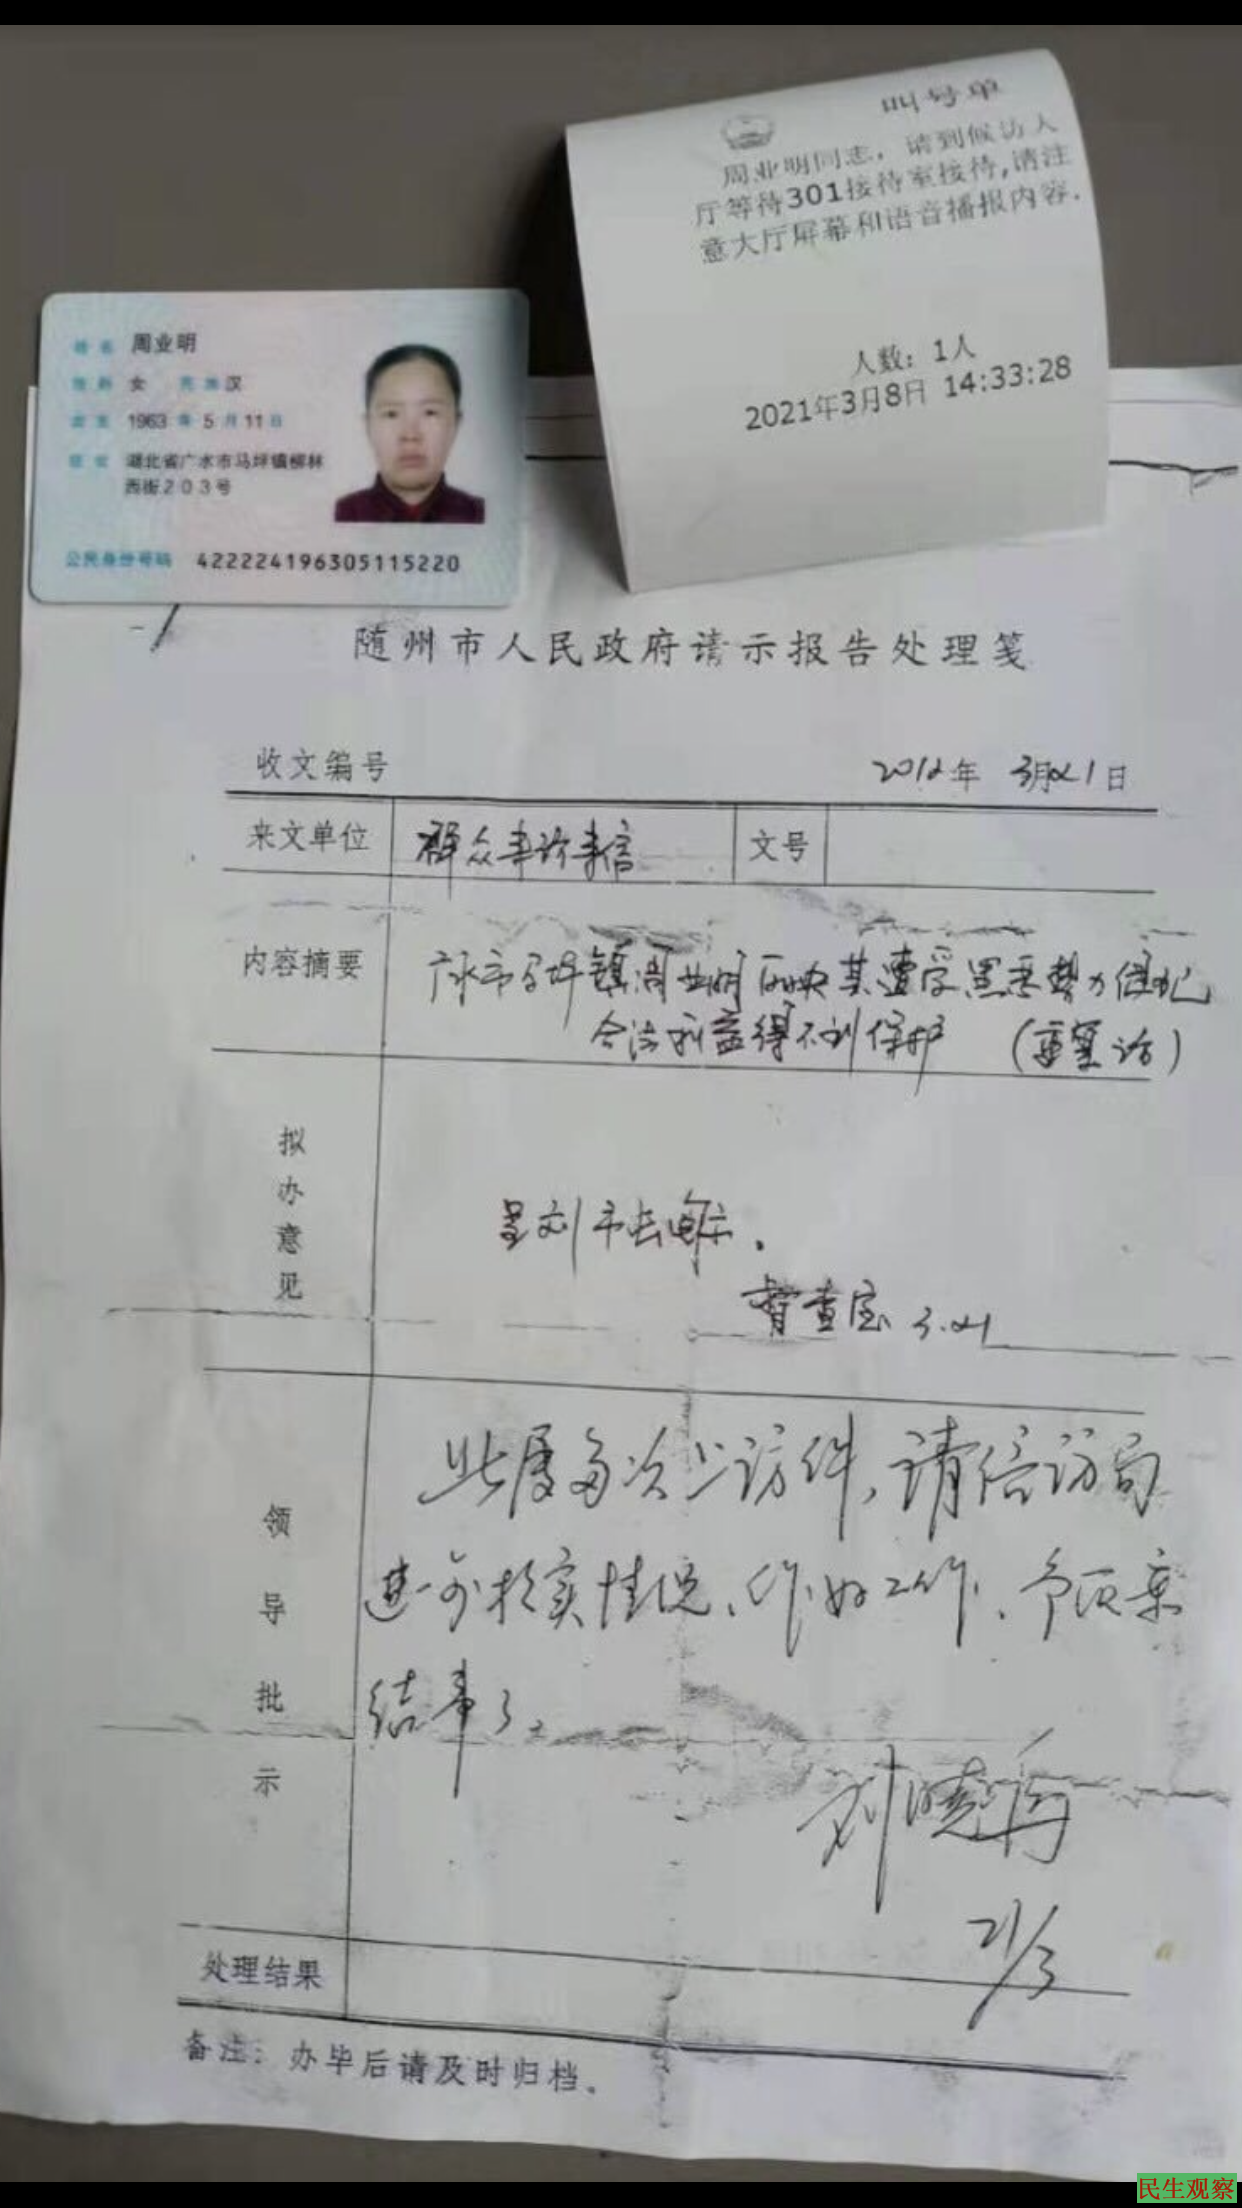 叫号单
周业明同志，请到候访人
厅等待301接待室接待,请注
意大厅屏幕和语音播报内容.
人数：1人
2021年3月8日 14:33:28
姓名 周业明
性别 女 民族 汉
出生 1963 年 5 月 11 日
住址 湖北省广水市马坪镇柳林
西街203号
公民身份号码 422224196305115220
随州市人民政府请示报告处理笺
收文编号
2012年 3月21日
来文单位 群众来访来信 文号
内容摘要 广水市马坪镇周业明反映其遭受黑恶势力侵犯
合法利益得不到保护 (重复访)
拟办意见
呈刘市长批示.
督查室 3.21
领导批示
此属多次上访件,请信访局
进一步核实情况、作好工作、
结事了.
刘晓
21/3
处理结果
备注：办毕后请及时归档。
民生观察